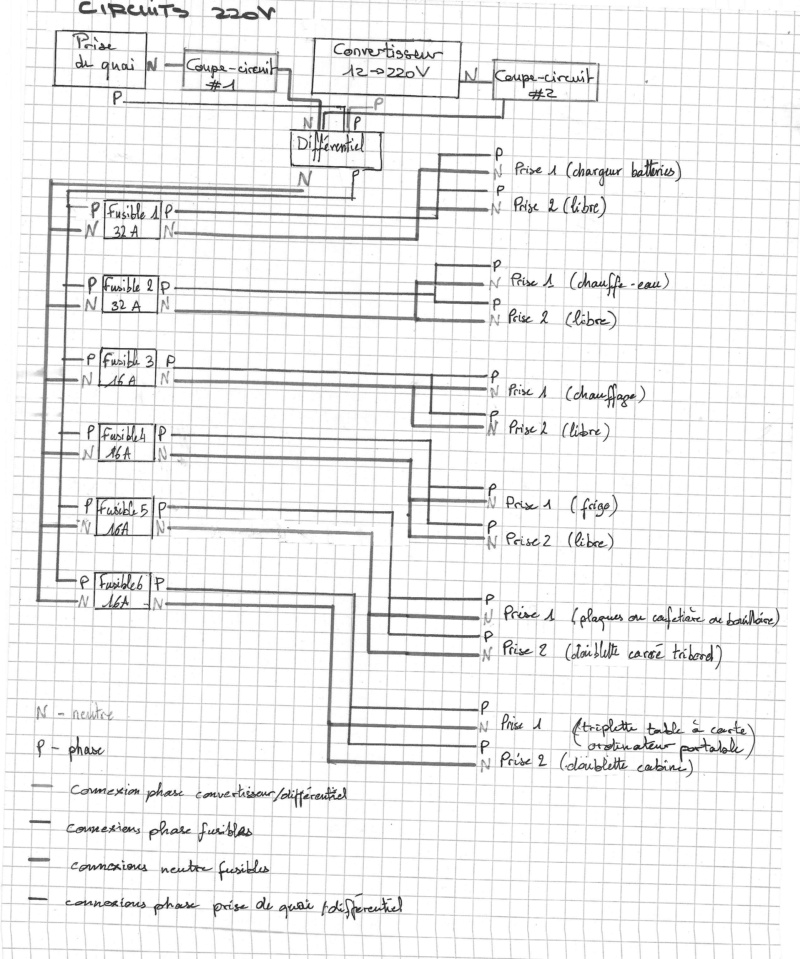 CIRCUITS 220V
Prise
de quai N
Coupe-circuit
#1
Convertisseur
12→220V
N
Coupe-circuit
#2
P
P
N P
Différentiel
N P
P Fusible 1 P
N 32 A N
P
N Prise 1 (chargeur batteries)
P
N Prise 2 (libre)
P Fusible 2 P
N 32 A N
P
N Prise 1 (chauffe-eau)
P
N Prise 2 (libre)
P Fusible 3 P
N 16 A N
P
N Prise 1 (chauffage)
P
N Prise 2 (libre)
P Fusible 4 P
N 16 A N
P
N Prise 1 (frigo)
P
N Prise 2 (libre)
P Fusible 5 P
N 16A N
P
N Prise 1 (plaques ou cafetière ou bouilloire)
P
N Prise 2 (doublette carré tribord)
P Fusible 6 P
N 16A N
P
N Prise 1 (triplette table à carte
ordinateur portable)
P
N Prise 2 (doublette cabine)
N - neutre
P - phase
— Connexion phase convertisseur/différentiel
— connexions phase fusibles
— connexions neutre fusibles
— connexions phase prise de quai /différentiel